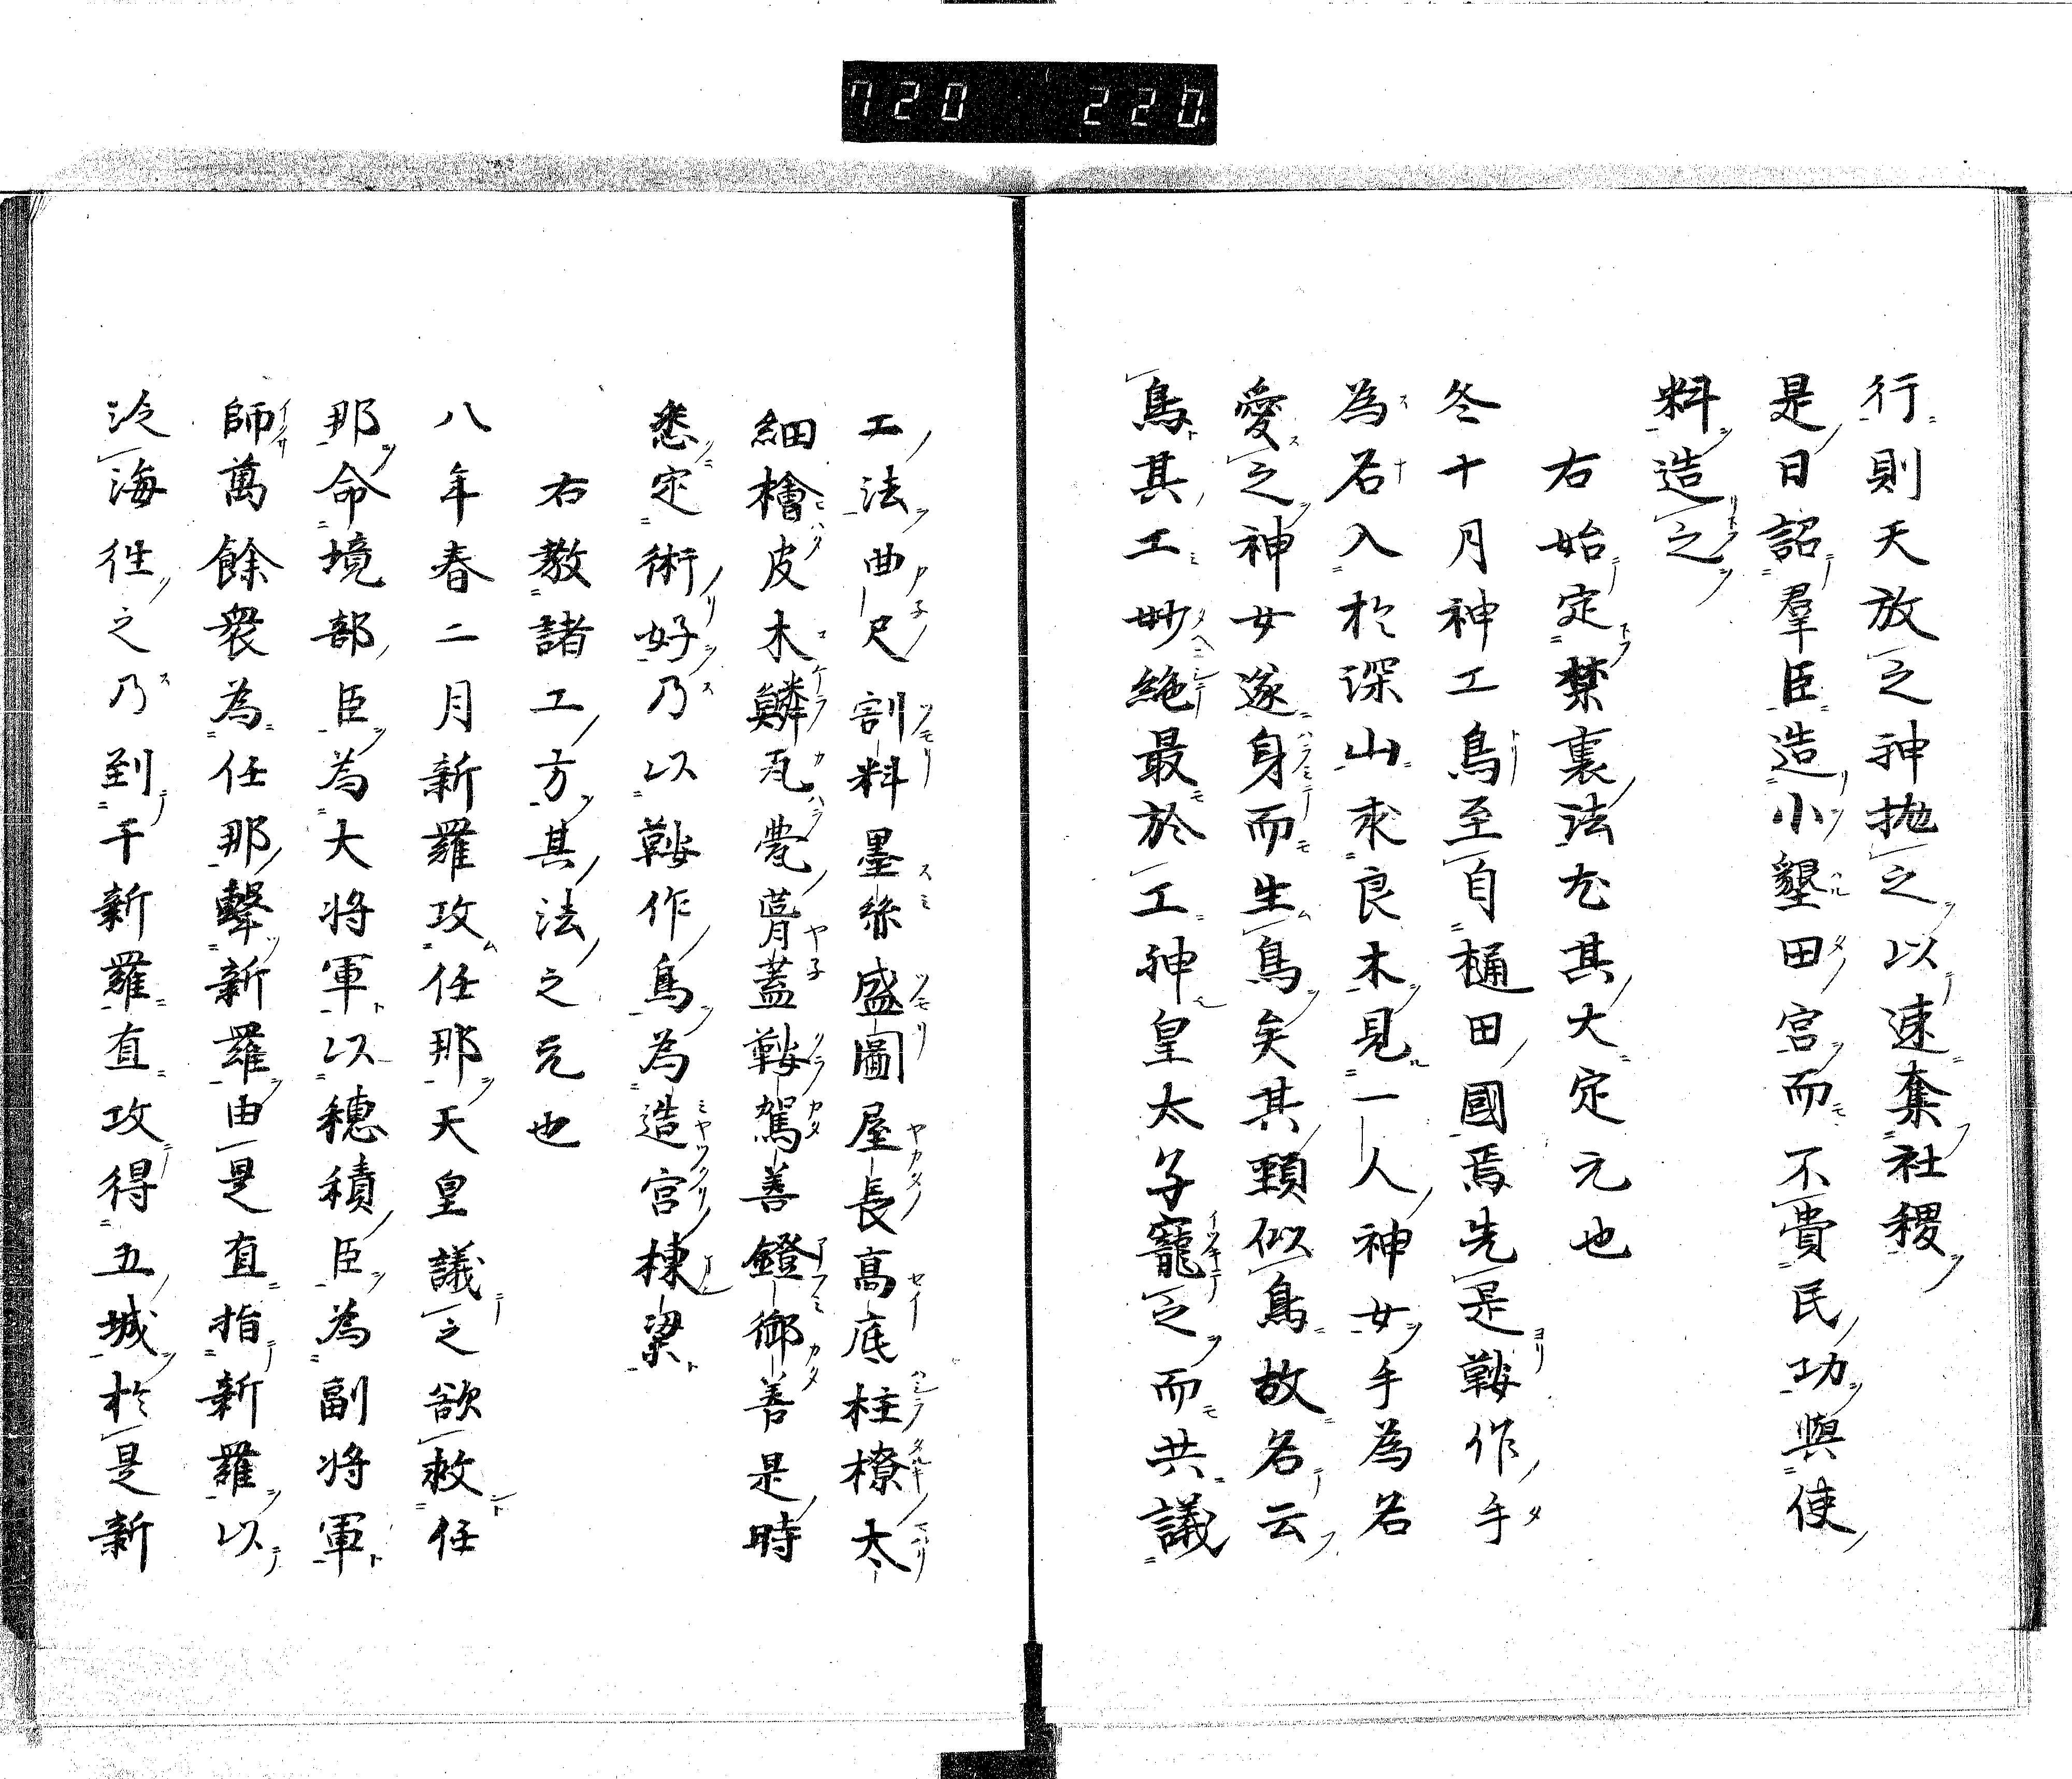 720 220
行則天放之神拋之以速奪社稷
是日詔羣臣造小墾田宮而不費民功與使
料造之
右始定禁裏法尤其大定元也
冬十月神工鳥至自樋田國焉先是鞍作手
為名入於深山求良木見一人神女手為名
愛之神女遂身而生鳥矣其頸似鳥故名云
鳥其工妙絶最於工神皇太子寵之而共議
工法曲尺割料墨絲盛圖屋長高底柱橑太
細檜皮木鱗瓦甍蓋鞍駕善鐙御善是時
悉定術好乃以鞍作鳥為造宮棟梁
右教諸工方其法之元也
八年春二月新羅攻任那天皇議之欲救任
那命境部臣為大将軍以穂積臣為副将軍
師萬餘衆為任那擊新羅由是直指新羅以
泛海徃之乃到于新羅直攻得五城於是新